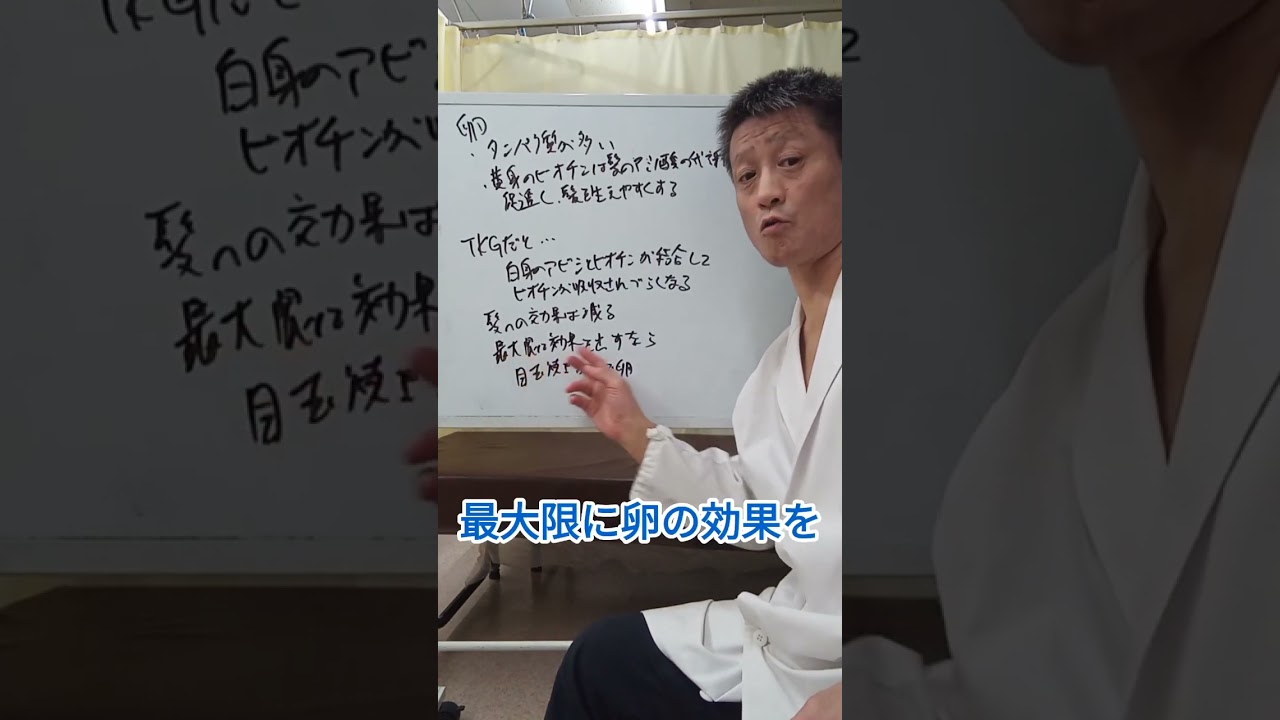 卵
・タンパク質が多い
・黄身のビオチンは髪のアミノ酸の代謝
促進し、髪を生えやすくする
TKGだと…
白身のアビジンとビオチンが結合して
ビオチンが吸収されづらくなる
髪への効果は減る
最大限に効果を出すなら
目玉焼き 卵
最大限に卵の効果を